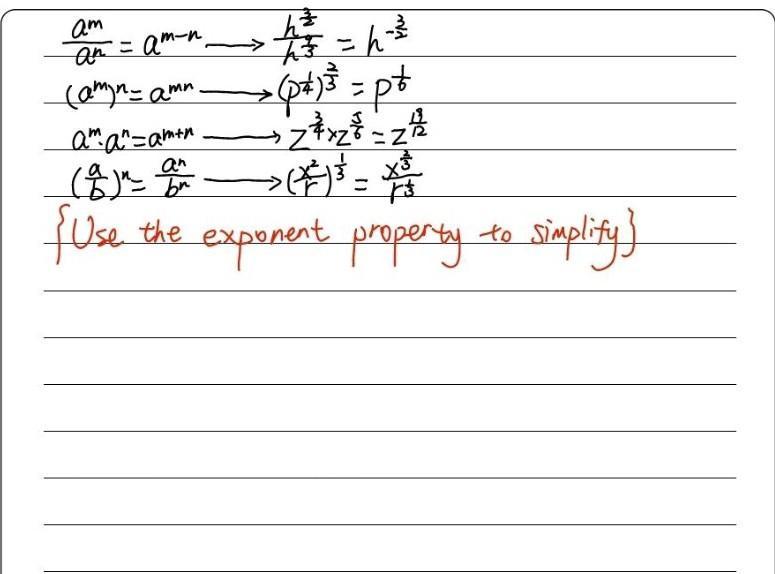 a^m/a^n = a^(m-n) ⟶ h^(3/2)/h^(9/3) = h^(-3/2)
(a^m)^n = a^(mn) ⟶ (p^(1/4))^(2/3) = p^(1/6)
a^m · a^n = a^(m+n) ⟶ z^(3/4) × z^(5/6) = z^(19/12)
(a/b)^n = a^n/b^n ⟶ (x^2/r)^(1/3) = x^(2/3)/r^(1/3)
{Use the exponent property to simplify}